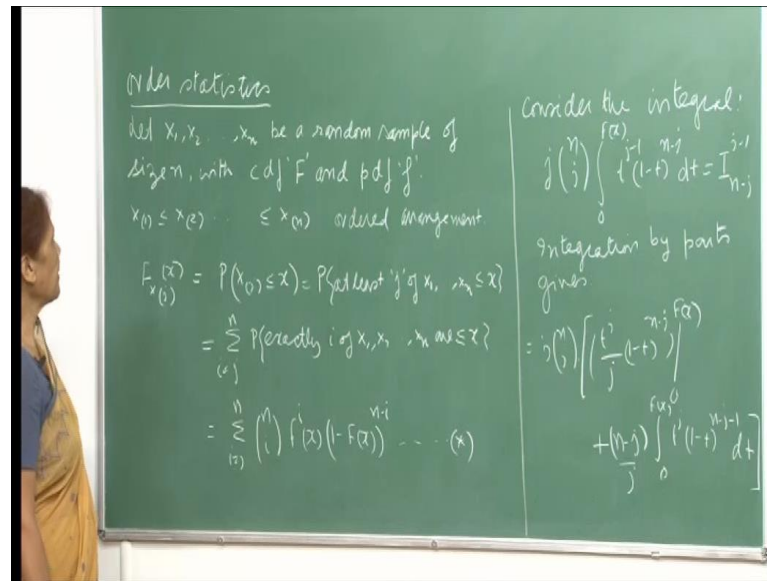 order statistics
Let X₁, X₂ . . , Xₙ be a random sample of
size n, with cdf 'F' and pdf 'f'.
X₍₁₎ ≤ X₍₂₎ . . . ≤ X₍ₙ₎ ordered arrangement.
F_{X₍ⱼ₎}(x) = P(X₍ⱼ₎ ≤ x) = P{at least 'j' of X₁, , Xₙ ≤ x}
= ∑_{i=j}^{n} P{exactly i of X₁, X₂ , Xₙ are ≤ x}
= ∑_{i=j}^{n} (n i) F^i(x) (1-F(x))^{n-i} - - . . . (*)
Consider the integral:
j (n j) ∫_0^{F(x)} t^{j-1} (1-t)^{n-j} dt = I_{n-j}^{j-1}
Integration by parts
gives
= j (n j) [ ( t^j/j (1-t)^{n-j} |_0^{F(x)}
+ (n-j)/j ∫_0^{F(x)} t^j (1-t)^{n-j-1} dt ]